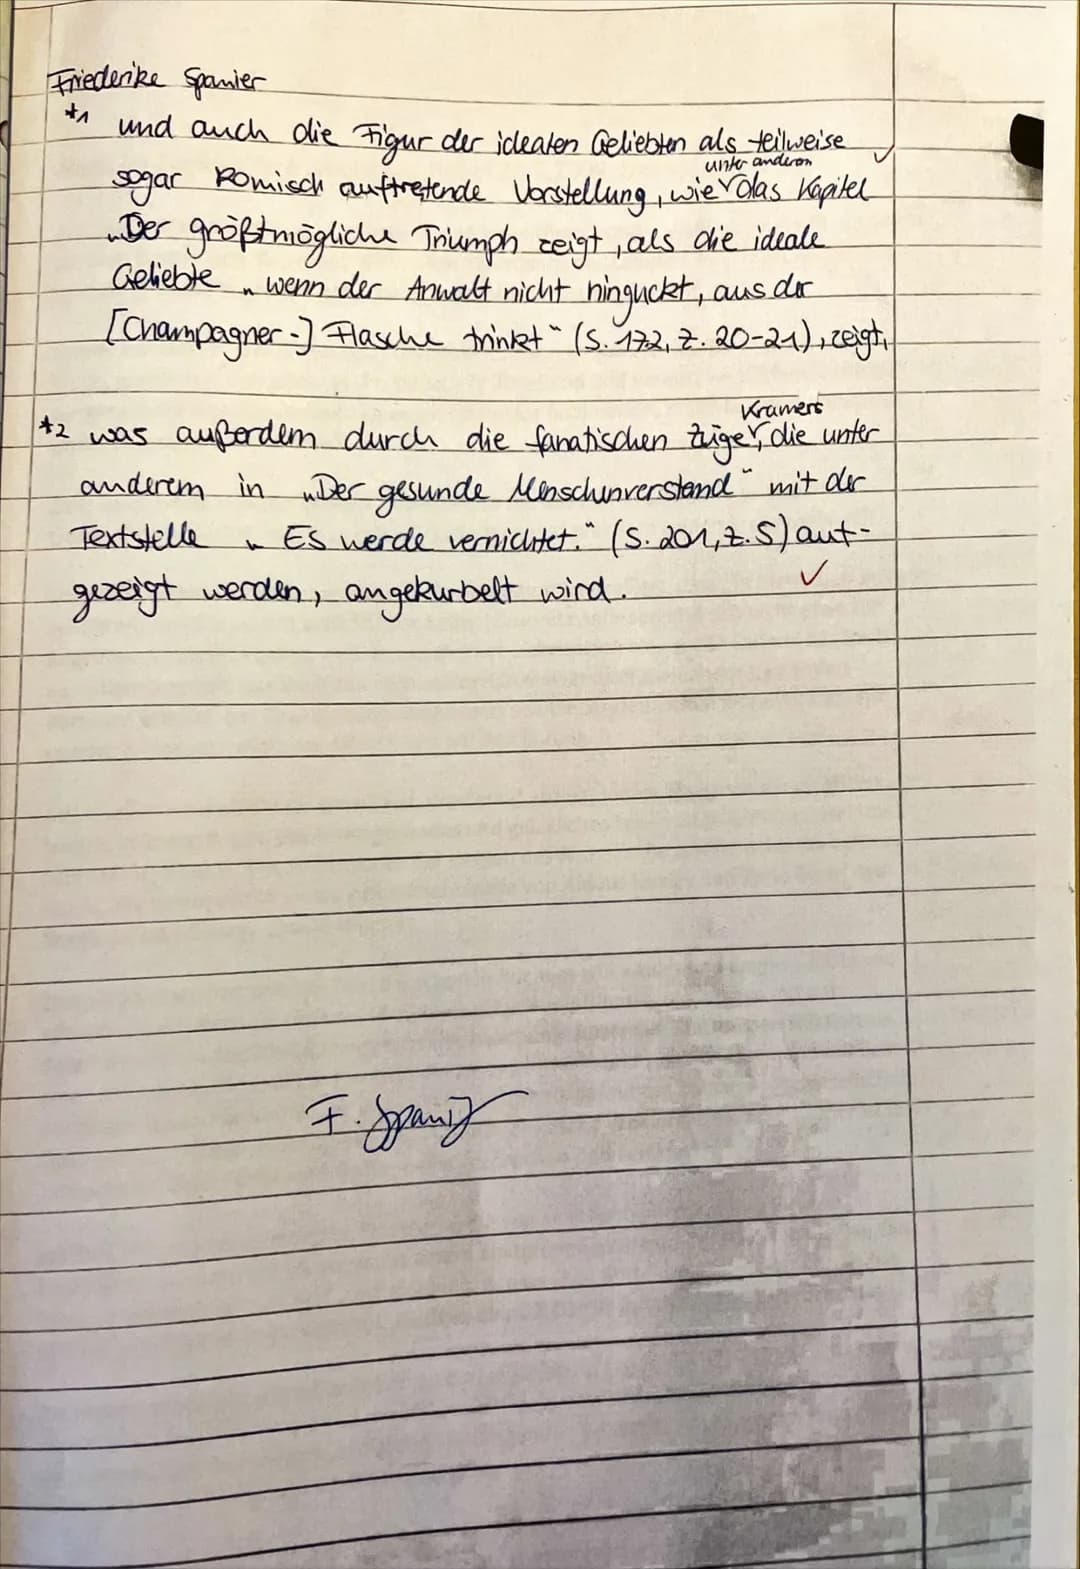 Friederike Spanier
*1 und auch die Figur der idealen Geliebten als teilweise
sogar komisch auftretende Vorstellung, wie unter anderem das Kapitel
„Der größtmögliche Triumph zeigt, als die ideale
Geliebte „wenn der Anwalt nicht hinguckt, aus der
[Champagner-] Flasche trinkt“ (S. 172, Z. 20-21), zeigt,
*2 was außerdem durch die fanatischen Züge Kramers, die unter
anderem in „Der gesunde Menschenverstand“ mit der
Textstelle „Es werde vernichtet.“ (S. 201, Z. 5) auf-
gezeigt werden, angekurbelt wird.
F. Spanier